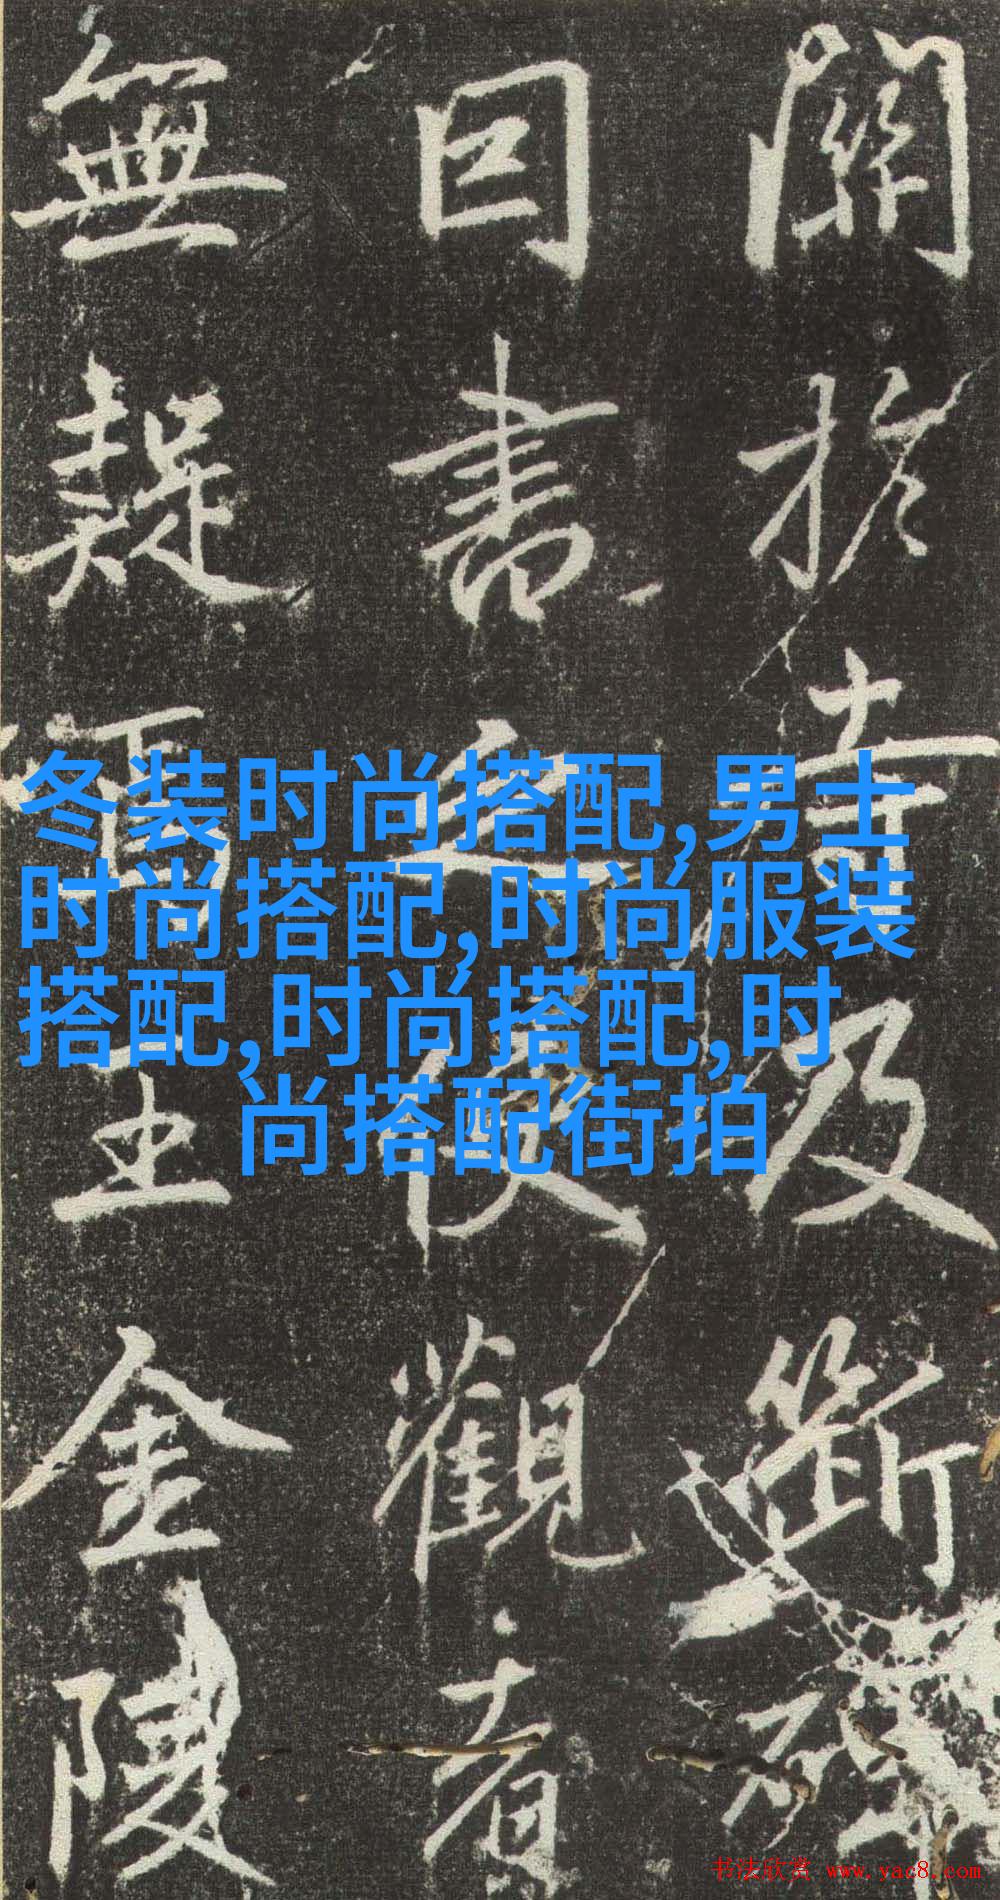 關於寺及斷碑
日書之後觀者
無疑焉王金陵
冬装时尚搭配,男士
时尚搭配,时尚服装
搭配,时尚搭配,时
尚搭配街拍
书法欣赏 www.yac8.com